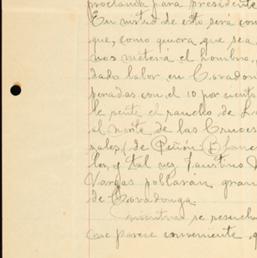 proclamda para presidente
En virtud de esto, sera con
que, como quiera que sea
nos meterá el hombro,
dado labor en Covadon
penadas con el 10 por ciento
la gente el rancho de L
al norte de las Cruces
gales, (de Peñón E) Lanc
los, y tal vez Faustino
Vargas poblarán gran
de Covadonga.
se resuelv
que parece conveniente, q